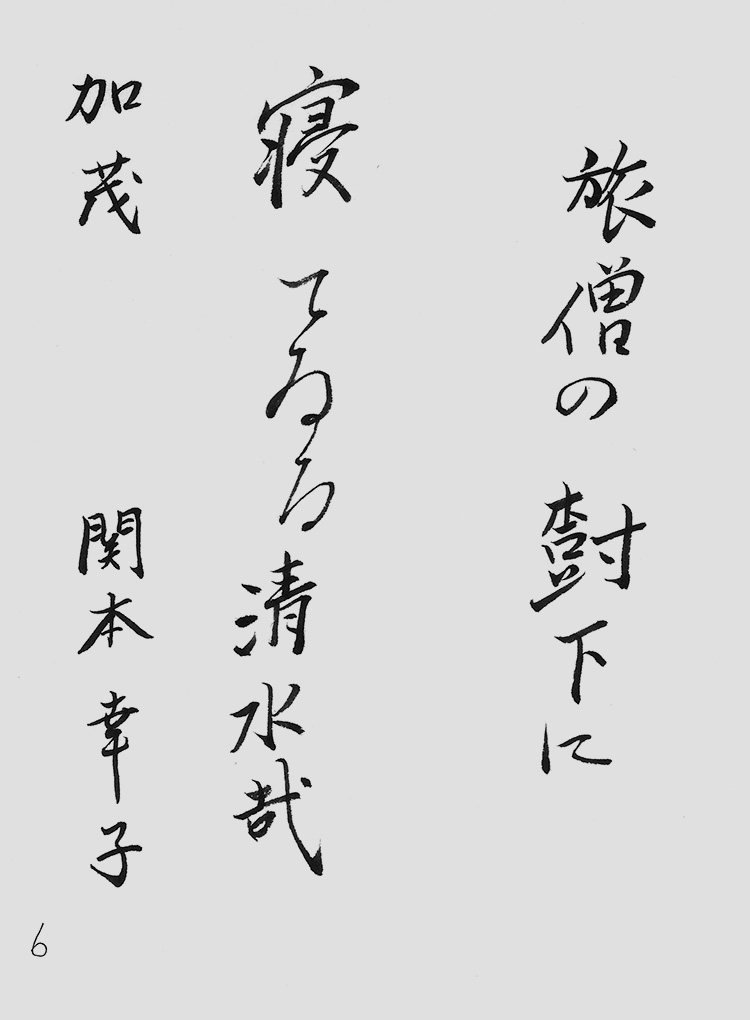 旅僧の樹下に
寝てゐる清水哉
加茂 関本幸子
6